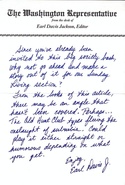 The Washington Representative
from the desk of
Earl Davis Jackson, Editor
Since you've already been
invited to this big society bash,
why not go ahead and make a
story out of it for our Sunday
Living section?
From the looks of this article,
there may be an angle that
hasn't been covered. Perhaps -
The Old Guard Club Types fleeing the
onslaught of suburbia. Could
play it either straight or
humorous depending on what
you get.
Enjoy,
Earl Davis J.